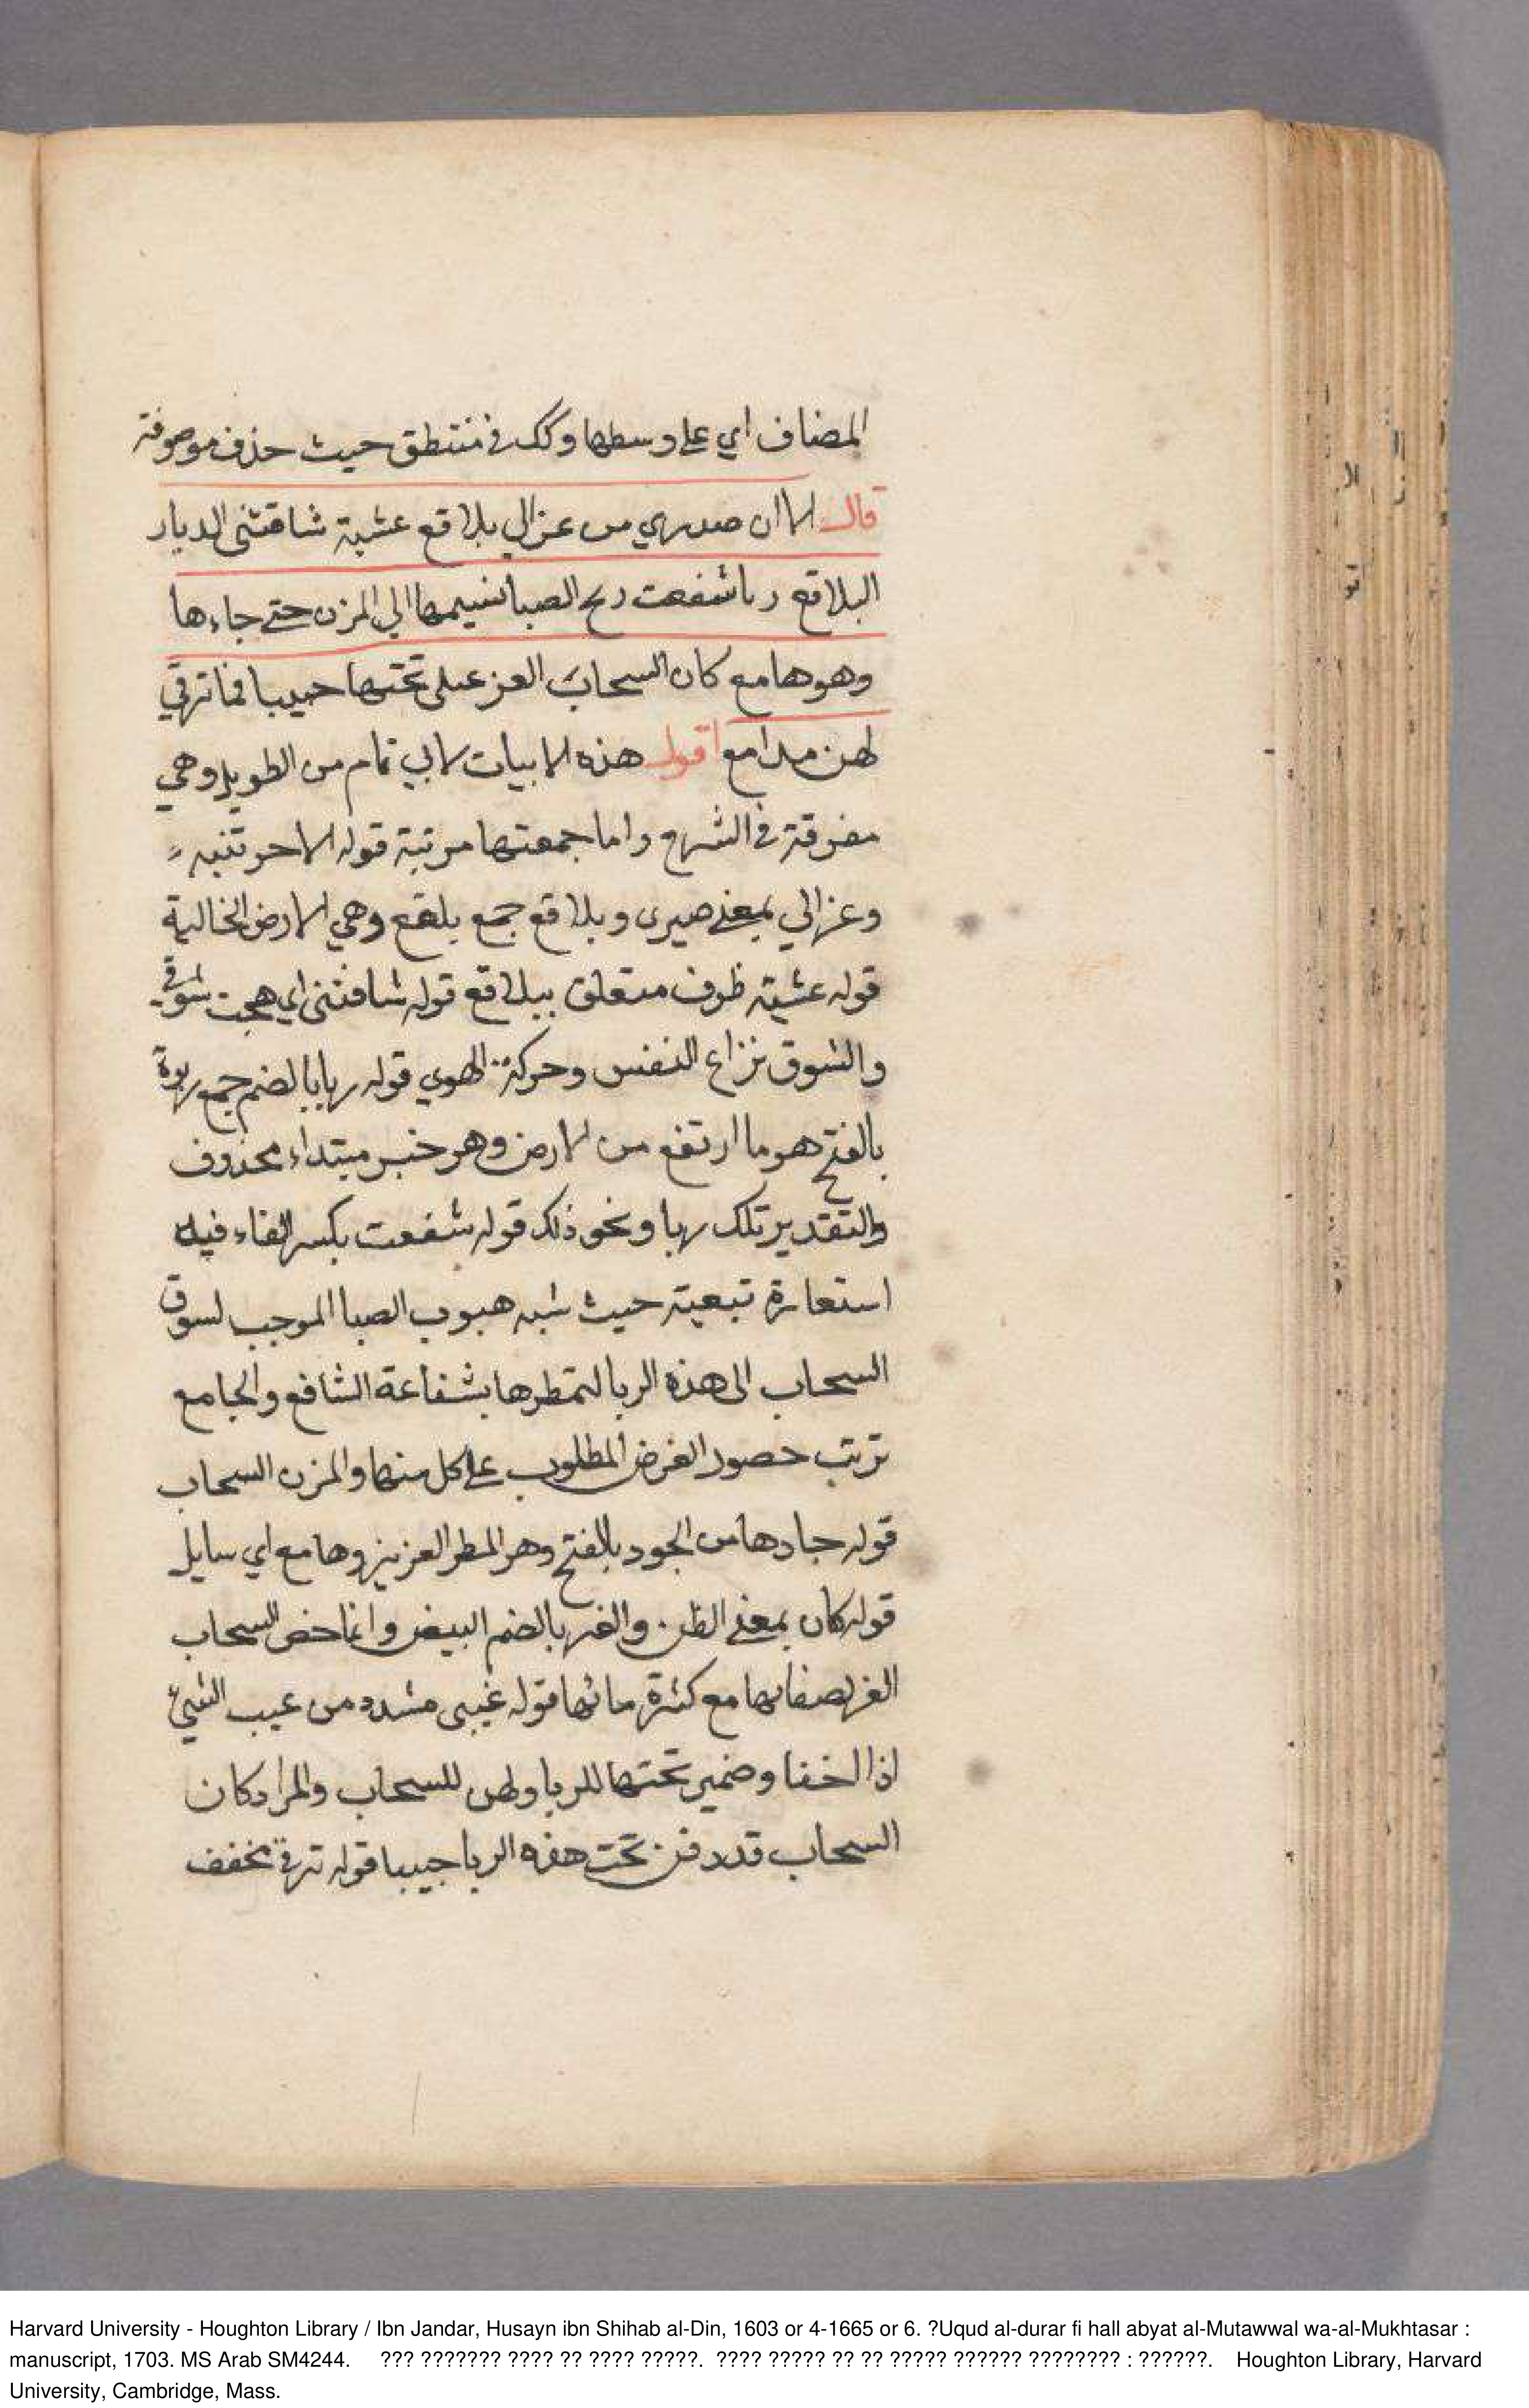 المضاف اي على وسطها وكك في منتطق حيث حذف موصوفة
قال الا ان صدري من عزالي بلاقع عشية شاقتني الديار
البلاقع ربا شفعت ريح الصبا نسيمها الي المزن حتى جاءها
وهو هامع كان السحاب الغر غيبن تحتها حبيبا فما ترقي
لهن مدامع اقول هذه الابيات لابي تمام من الطويل وهي
مفرقة في الشرح واما جمعتها مرتبة قوله الا حر تنبيه
وعزالي بمعني صبري وبلاقع جمع بلقع وهي الارض الخالية
قوله عشية ظرف متعلق ببلاقع قوله شاقتني اي هجت شوقي
والشوق نزاع النفس وحركة الهوي قوله ربا بالضم جمع ربوة
بالفتح هو ما ارتفع من الارض وهو خبر مبتداء محذوف
والتقدير تلك ربا ونحو ذلك قوله شفعت بكسر الفاء فيه
استعارة تبعية حيث شبه هبوب الصبا الموجب لسوق
السحاب الى هذه الربا لتمطرها بشفاعة الشافع والجامع
ترتب حصول الغرض المطلوب على كل منها والمزن السحاب
قوله جادها من الجود بالفتح وهو المطر الغزيز وهامع اي سايل
قوله كان بمعني الظن والغر بالضم البيض وانما خص السحاب
الغر لصفايها مع كثرة مائها قوله غيبى مشدد من غيب الشيئ
اذا اخفا وضمير تحتها للربا ولهن للسحاب والمراد كان
السحاب قد دفن تحت هذه الربا حبيبا قوله ترقى مخفف
Harvard University - Houghton Library / Ibn Jandar, Husayn ibn Shihab al-Din, 1603 or 4-1665 or 6. ?Uqud al-durar fi hall abyat al-Mutawwal wa-al-Mukhtasar :
manuscript, 1703. MS Arab SM4244. ??? ??????? ???? ?? ???? ?????. ???? ????? ?? ?? ????? ?????? ???????? : ??????. Houghton Library, Harvard
University, Cambridge, Mass.